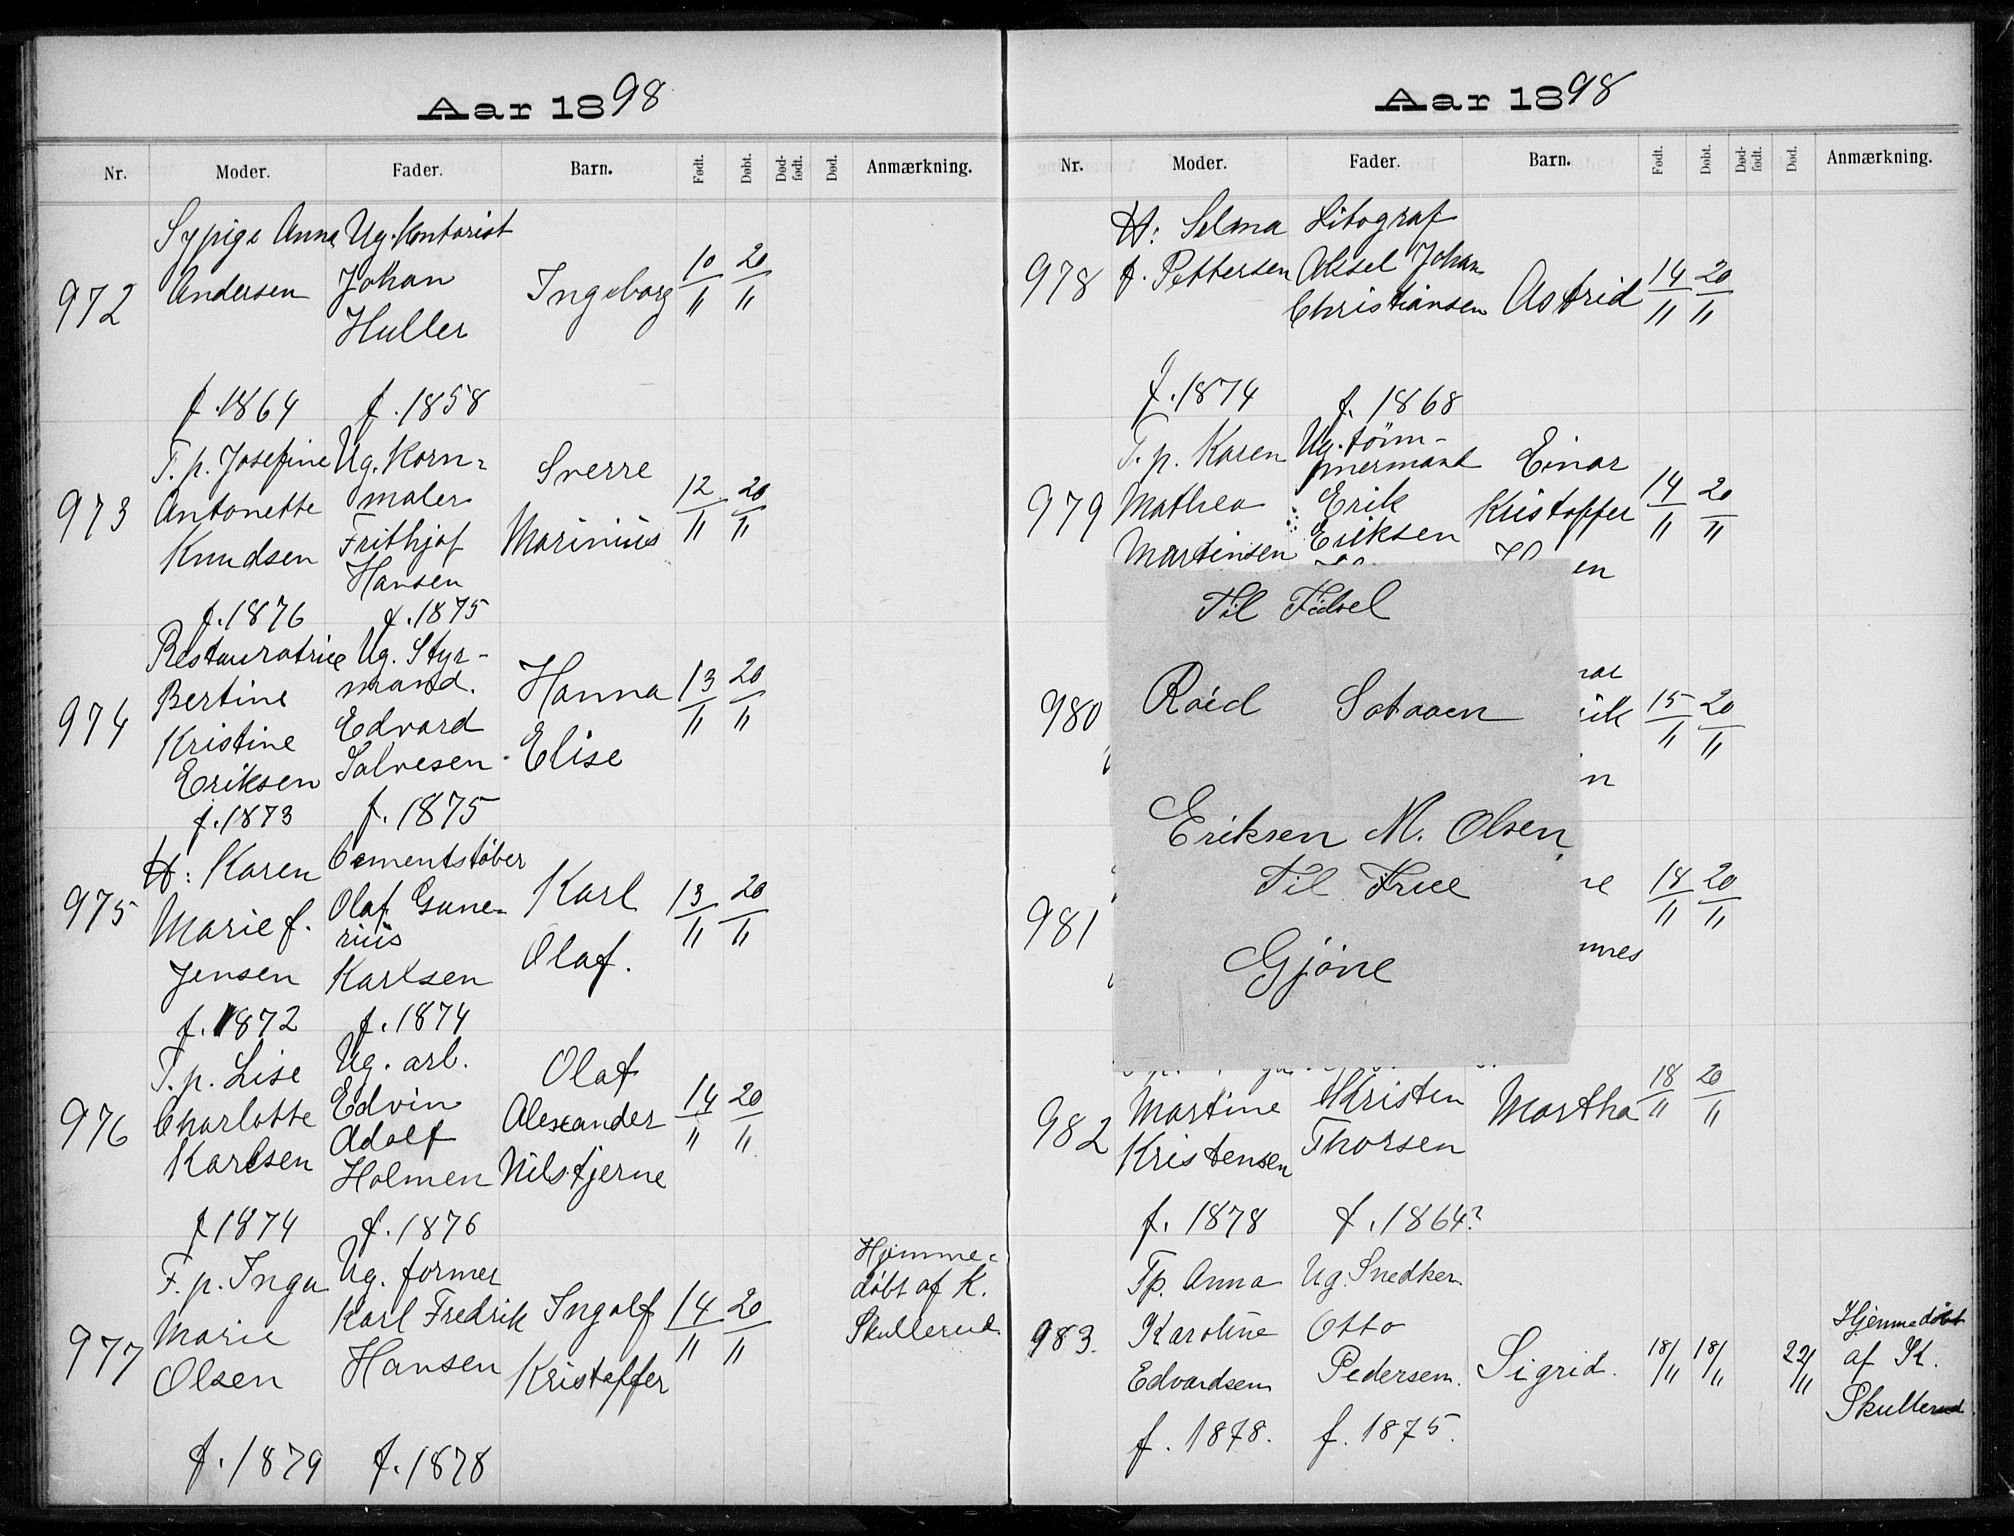 Aar 1898
Nr. Moder. Fader. Barn. Født. Døbt. Død-født. Død. Anmærkning.
972
Sypige Anna
Andersen
f. 1864
Ug. Kontorist
Johan
Huller
f. 1858
Ingeborg
10/11 20/11
973
T. p. Josefine
Antonette
Knudsen
f. 1876
Ug. Korn-
maler
Frithjof
Hansen
f. 1875
Sverre
Marinius
12/11 20/11
974
Restauratrice
Bertine
Kristine
Eriksen
f. 1873
Ug. Styr-
mand.
Edvard
Salvesen
f. 1875
Hanna
Elise
13/11 20/11
975
H: Karen
Marie f.
Jensen
f. 1872
Cementstøber
Olaf Gune-
rius
Karlsen
f. 1874
Karl
Olaf.
13/11 20/11
976
T. p. Lise
Charlotte
Karlsen
f 1874
Ug. arb.
Edvin
Adolf
Holmen
f. 1876
Olaf
Alexander
Nilstjerne
14/11 20/11
977
F. p. Inga
Marie
Olsen
f. 1879
Ug. former
Karl Fredrik
Hansen
f. 1878
Ingolf
Kristoffer
14/11 20/11
Hjemme-
døbt af K.
Skullerud.
Aar 1898
Nr. Moder. Fader. Barn. Født. Døbt. Død-født. Død. Anmærkning.
978
H: Selma
f. Pettersen
f. 1874
Litograf
Aksel Johan
Christiansen
f. 1868
Astrid
14/11 20/11
979
T. p. Karen
Mathea
Martinsen
Ug. tøm-
mermand
Erik
Eriksen
Einar
Kristoffer
en
14/11 20/11
Til Fødsel
Roéd Sataaen
Eriksen M. Olsen,
Til Frue
Gjóne
980
nar
rik
in
15/11 20/11
981
ne
nnes
18/11 20/11
982
Martine
Kristensen
f. 1878
Kristen
Thorsen
f. 1864?
Martha
18/11 20/11
983.
Tp. Anna
Karoline
Edvardsen
f. 1878.
Ug. Snedker
Otto
Pedersen.
f. 1875.
Sigrid.
18/11 18/11 22/11
Hjemmedøbt
af K.
Skullerud